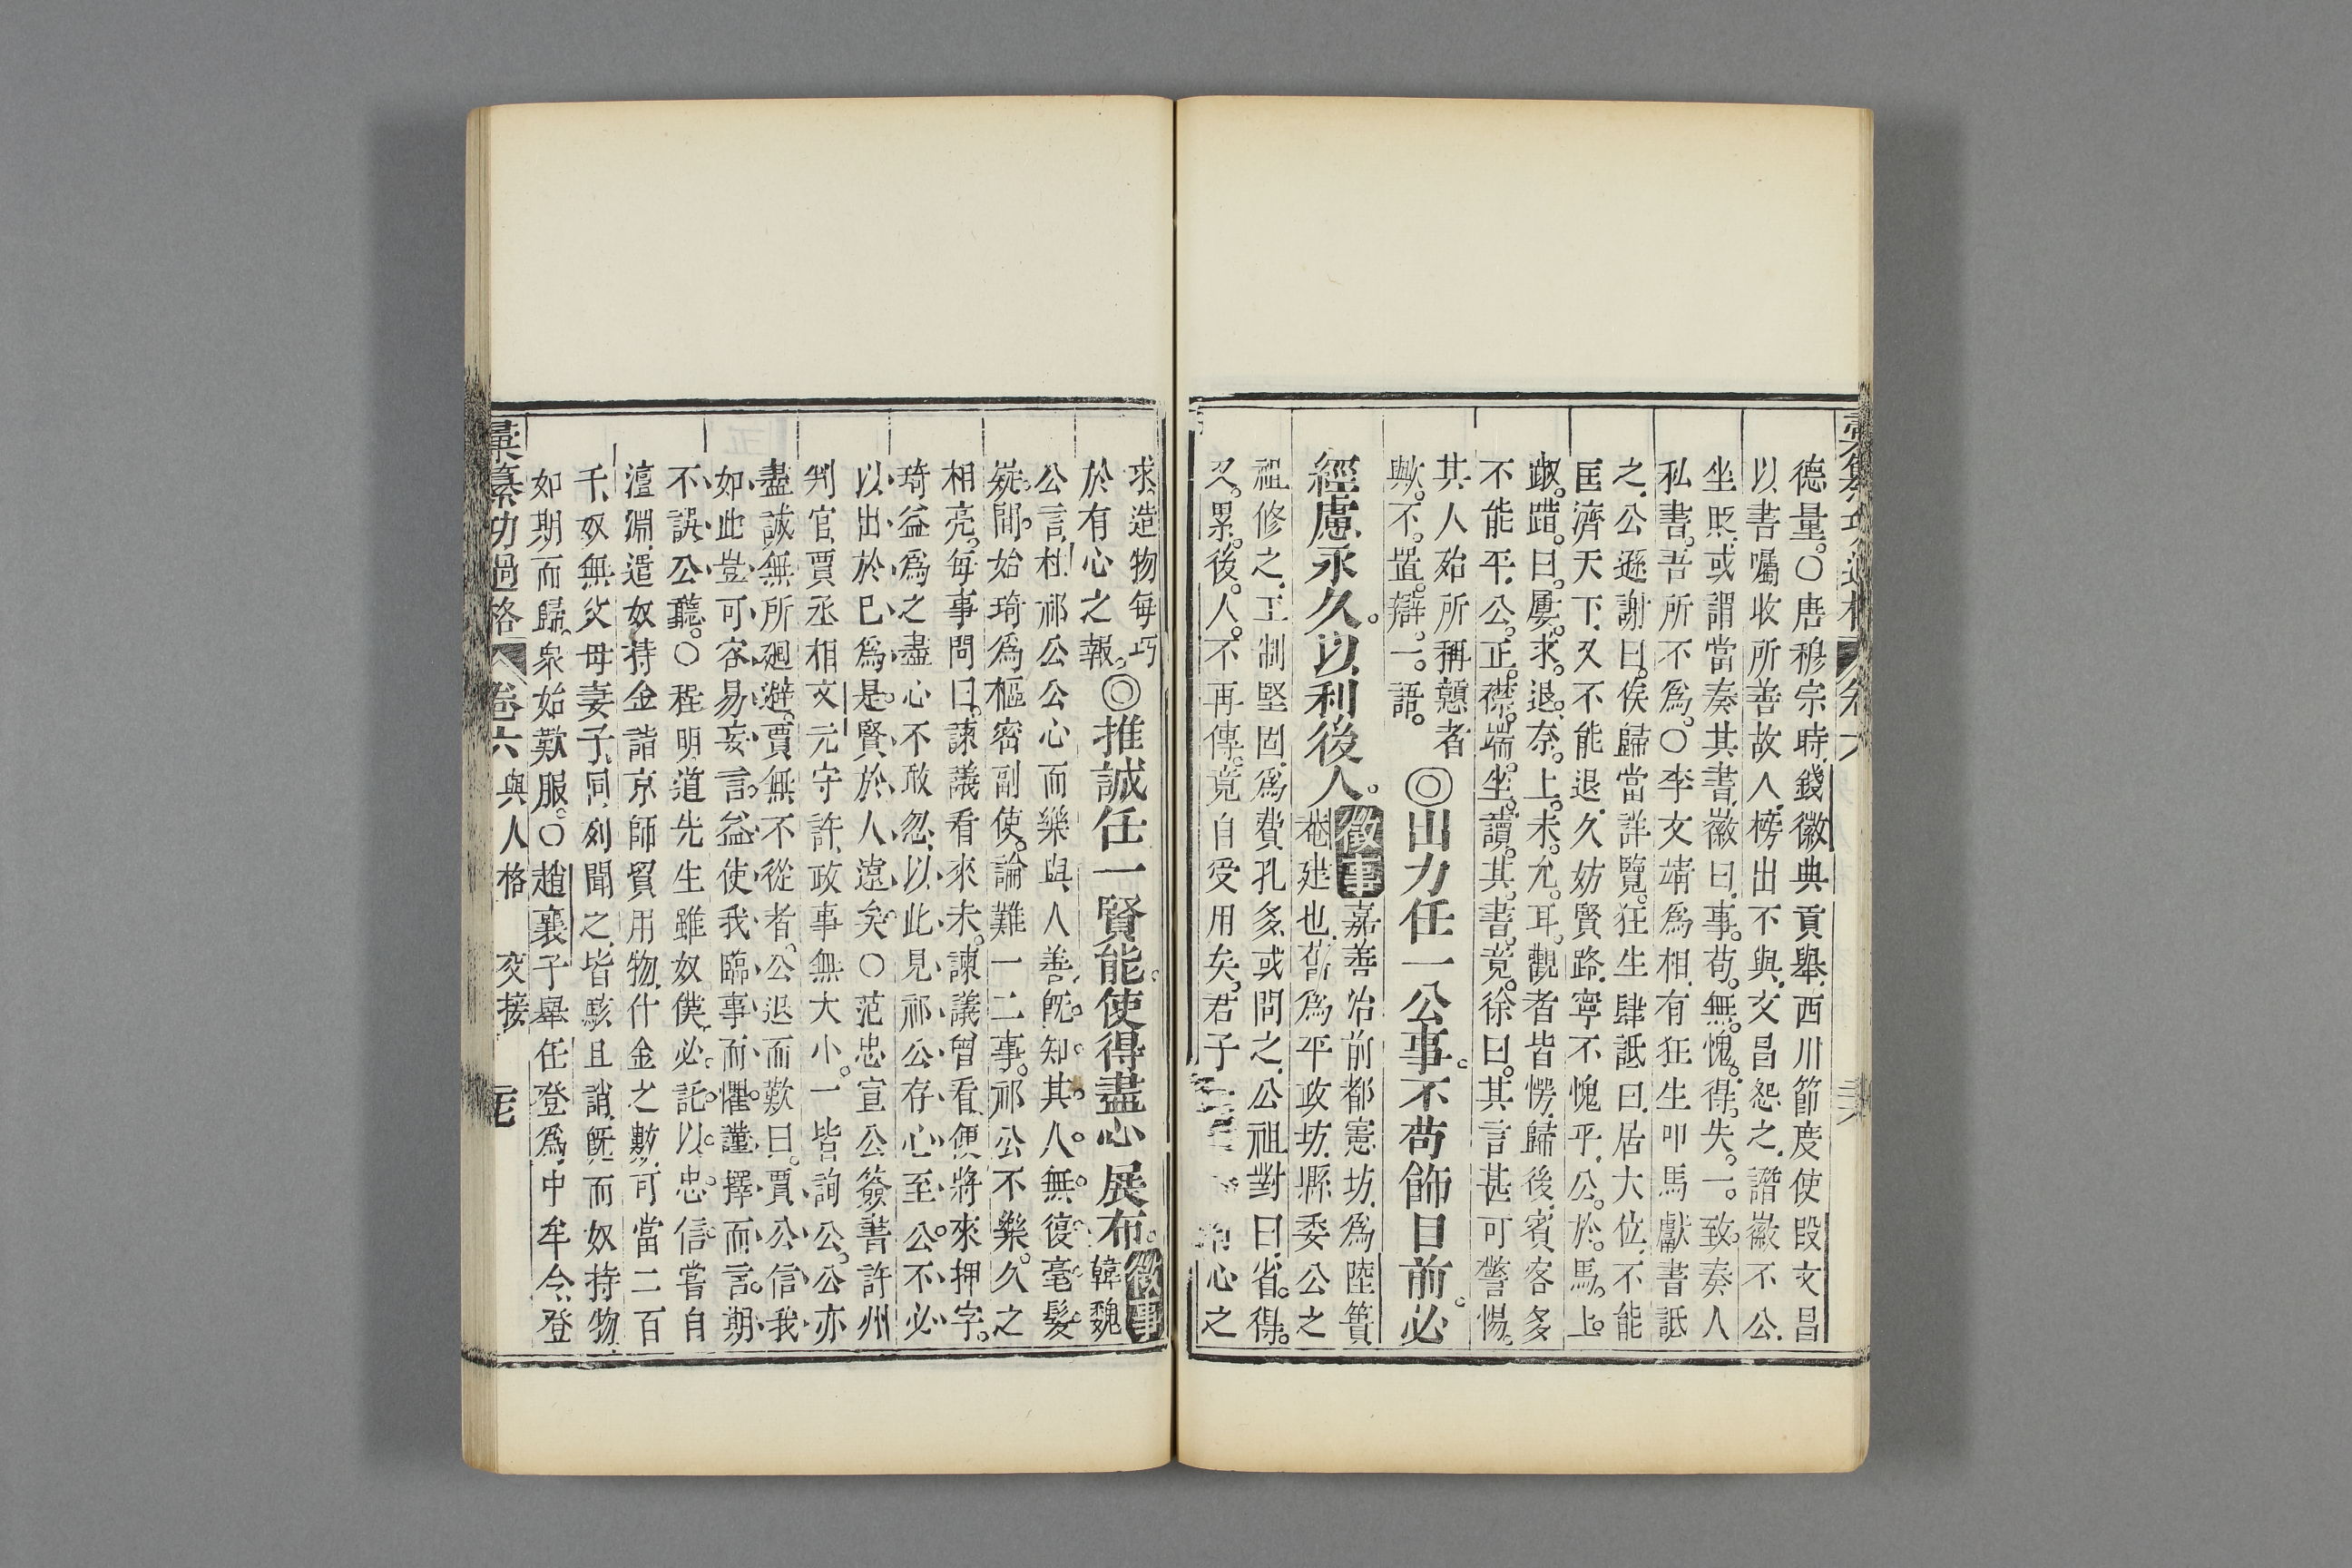 彙纂功過格 卷六
德量。○唐穆宗時、錢徽典貢舉、西川節度使段文昌
以書囑收所善故人、榜出不與、文昌怨之、譖徽不公、
坐貶、或謂當奏其書、徽曰、事苟無愧、得失一致、奏人
私書、吾所不爲。○李文靖爲相、有狂生叩馬獻書詆
之、公遜謝曰、俟歸當詳覽。狂生肆詆曰、居大位、不能
匡濟天下、又不能退、久妨賢路、寧不愧乎、公於馬上
踧踖曰、屢求退、奈上未允耳。觀者皆愕、歸後、賓客多
不能平、公正襟端坐、讀其書竟、徐曰、其言甚可警惕。
其人殆所稱戇者
歟。不置辯一語。◎出力任一公事。不苟飾目前。必
經慮永久。以利後人。徵事 嘉善治前都憲坊、爲陸簣
菴建也、舊爲平政坊、縣委公之
祖修之、工制堅固、爲費孔多、或問之、公祖對曰、省得
又累後人、不再傳、竟自受用矣。君子 心之
求造物每巧
於有心之報。◎推誠任一賢能。使得盡心展布。徵事 韓魏
公言、杜祁公公心而樂與人善、既知其人、無復毫髮
疑間、始琦爲樞密副使、論難一二事、祁公不樂。久之
相亮。每事問曰、諫議看來未、諫議曾看、便將來押字。
琦益爲之盡心不敢忽、以此見祁公存心至公、不必
以出於己爲是、賢於人遠矣。○范忠宣公簽書許州
判官、賈丞相文元守許、政事無大小、一皆詢公、公亦
盡誠無所廻避。賈無不從者、公退而歎曰、賈公信我
如此、豈可容易妄言。益使我臨事而懼、謹擇而言。期
不誤公聽。○程明道先生雖奴僕必託以忠信、嘗自
澶淵遣奴持金詣京師貿用物、什金之數、可當二百
千、奴無父母妻子、同列聞之、皆駭且誚、既而奴持物
如期而歸、衆始歎服。○趙襄子舉任登爲中牟令、登
彙纂功過格 卷六 與人格 交接